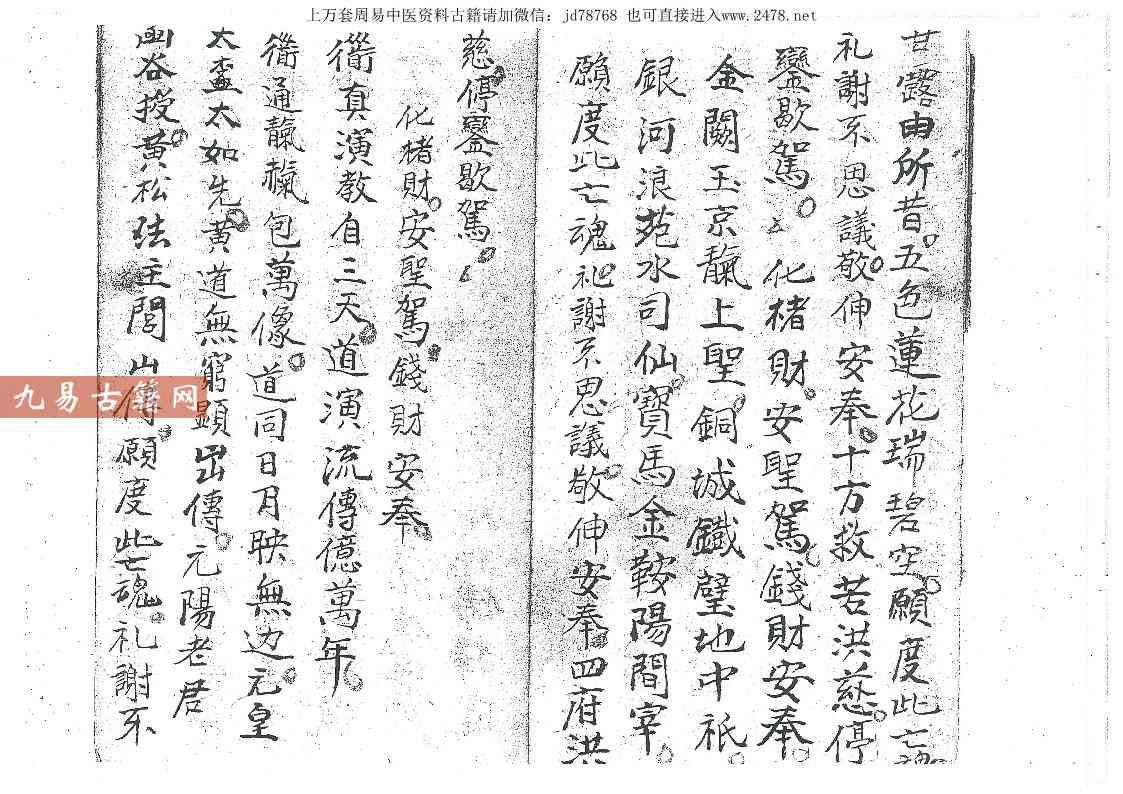 上万套周易中医资料古籍请加微信：jd78768 也可直接进入www.2478.net
甘露由所昔。五色蓮花瑞碧空。願度此亡魂
礼謝不思議。敬伸安奉。十方救苦洪慈。停
鑾歇駕。化楮財。安聖駕。錢財安奉。
金闕玉京靝上聖。銅城鐵壁地中祇。
銀河浪苑水司仙。寶馬金鞍陽間宰。
願度此亡魂。礼謝不思議。敬伸安奉。四府洪
慈。停鑾歇駕。
化楮財。安聖駕。錢財安奉。
衟真演教自三天。道演流傳億萬年。
衟通靝𣱛包萬像。道同日月映無边。元皇
太盃太如先。黄道無窮顯出傳。元陽老君
函谷授。黄松法主閭山傳。願度此亡魂。礼謝不
九易古籍网